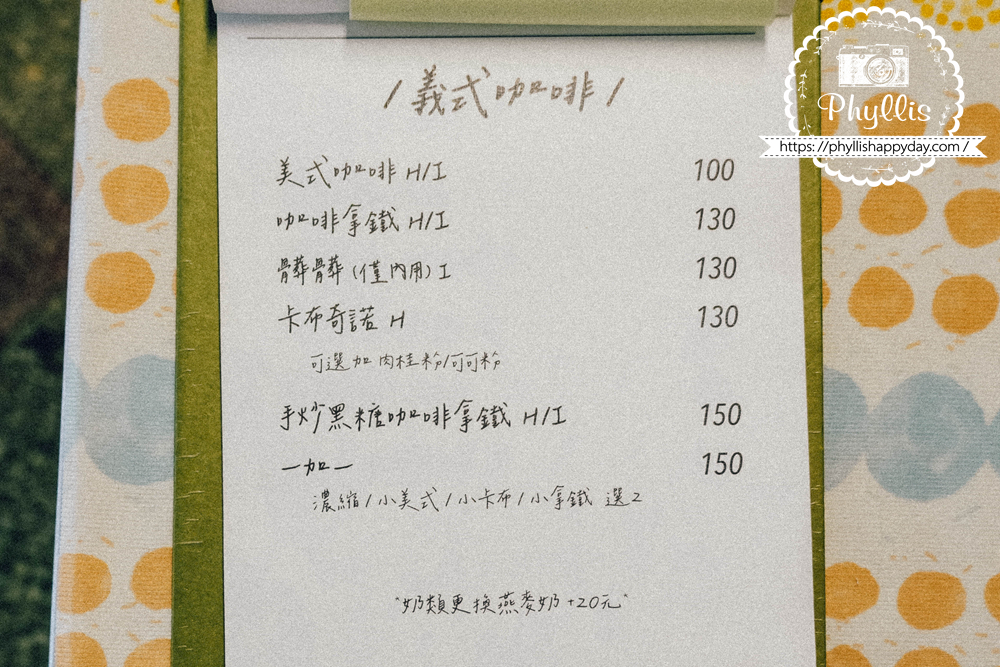 /義式咖啡/
美式咖啡 H/I 100
咖啡拿鐵 H/I 130
髒髒(僅內用) I 130
卡布奇諾 H 130
可選加 肉桂粉/可可粉
手炒黑糖咖啡拿鐵 H/I 150
一加一 150
濃縮/小美式/小卡布/小拿鐵 選2
"奶類更換燕麥奶+20元"
Phyllis
https://phyllishappyday.com/